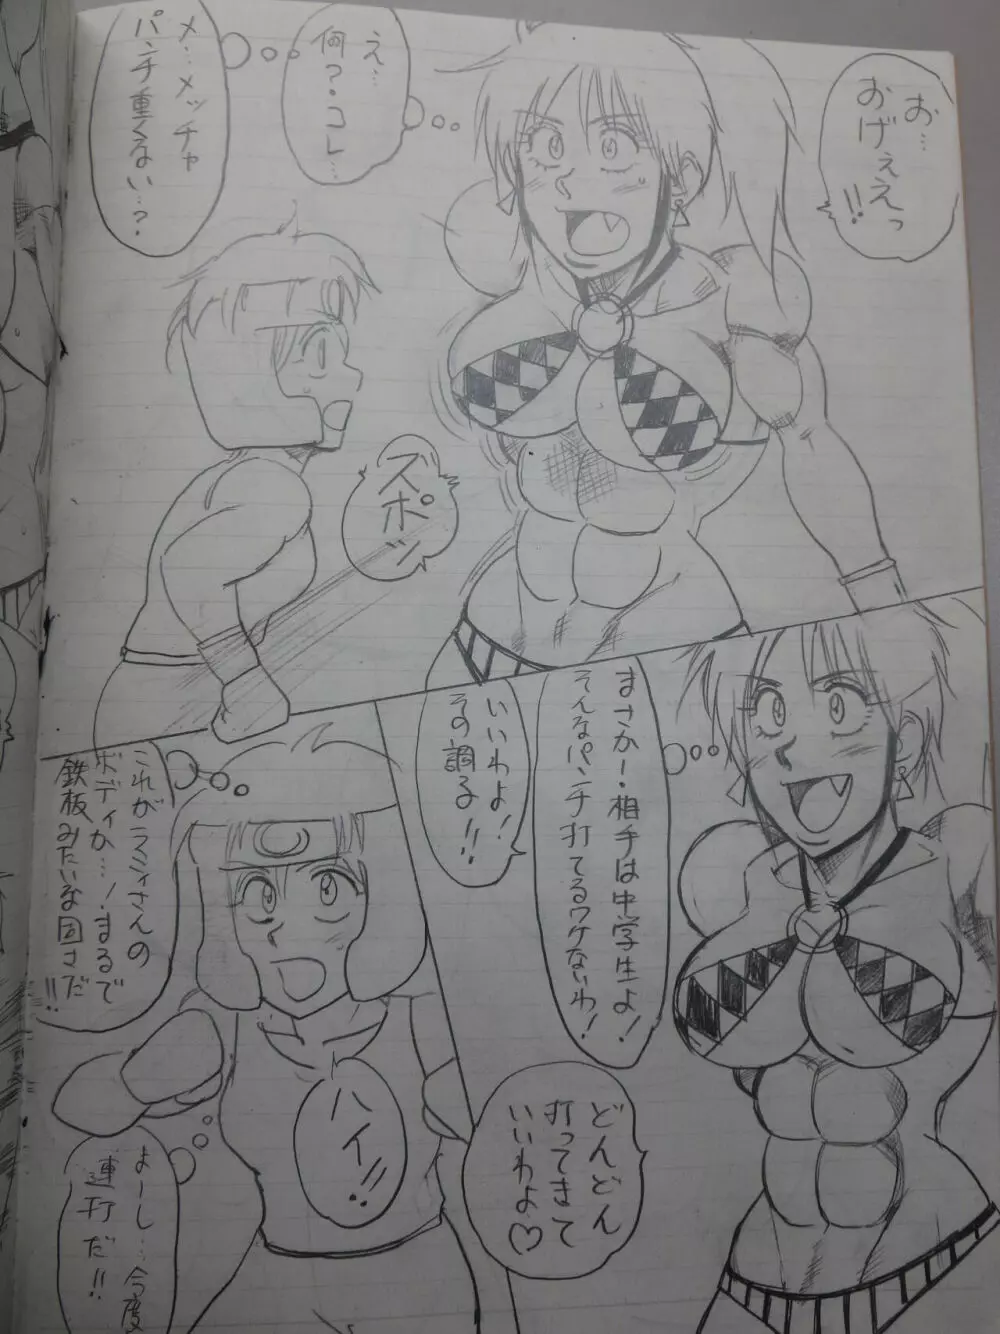 お…
おげぇえっ
!!
え…
何?コレ…
メ…メッチャ
パンチ重くない…?
ズポッ
まさか!相手は中学生よ!
そんなパンチ打てるワケないわ!
いいわよ!
その調子!!
どんどん
打ってきて
いいわよ♡
これがラミィさんの
ボディか…!まるで
鉄板みたいな固さだ
!!
ハイ!!
よーし…今度は
連打だ!!